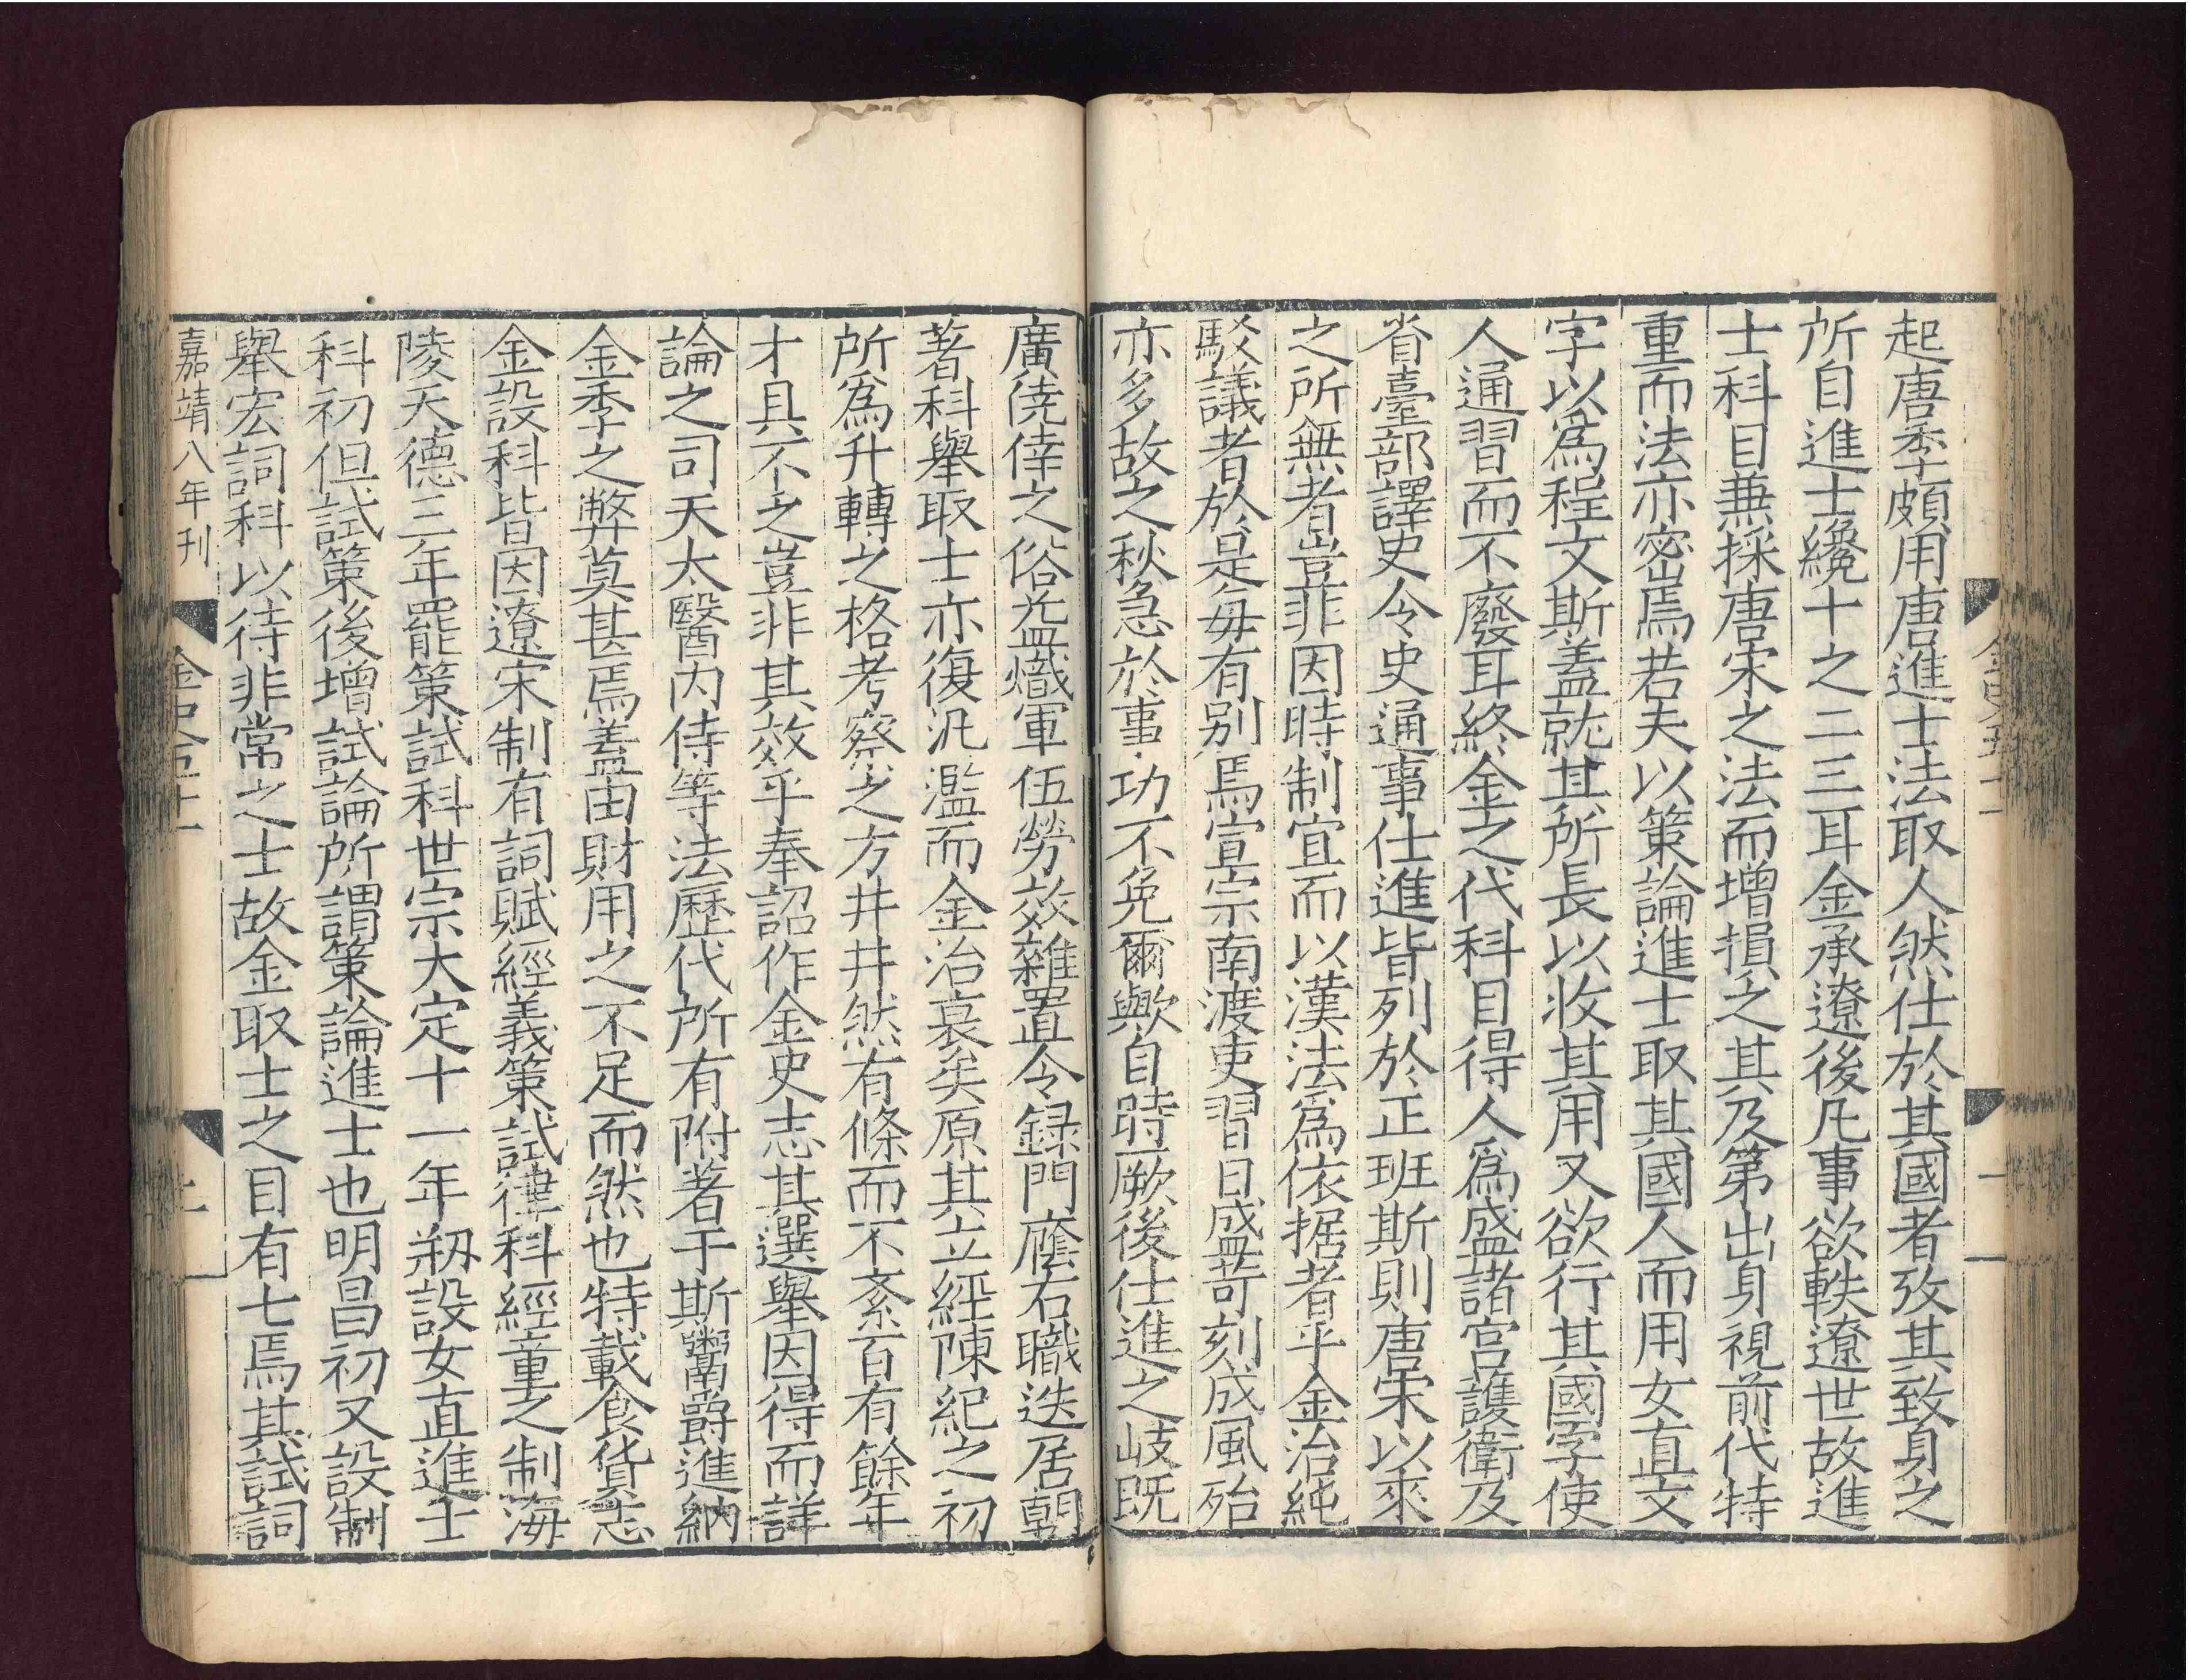 起唐季頗用唐進士法取人然仕於其國者攷其致身之
所自進士纔十之二三耳金承遼後凡事欲軼遼世故進
士科目兼採唐宋之法而增損之其及第出身視前代特
重而法亦密焉若夫以策論進士取其國人而用女直文
字以爲程文斯蓋就其所長以收其用又欲行其國字使
人通習而不廢耳終金之代科目得人爲盛諸宮護衛及
省臺部譯史令史通事仕進皆列於正班斯則唐宋以來
之所無者豈非因時制宜而以漢法爲依据者乎金治純
駁議者於是每有别焉宣宗南渡吏習日盛苛刻成風殆
亦多故之秋急於事功不免爾歟自時厥後仕進之岐既
廣僥倖之俗益熾軍伍勞效雜置令録門廕右職迭居朝
著科舉取士亦復汎濫而金治衰矣原其立經陳紀之初
所爲升轉之格考察之方井井然有條而不紊百有餘年
才具不乏豈非其效乎奉詔作金史志其選舉因得而詳
論之司天太醫内侍等法歷代所有附著于斯鬻爵進納
金季之弊莫甚焉蓋由財用之不足而然也特載食貨志
金設科皆因遼宋制有詞賦經義策試律科經童之制海
陵天德三年罷策試科世宗大定十一年剏設女直進士
科初但試策後增試論所謂策論進士也明昌初又設制
舉宏詞科以待非常之士故金取士之目有七焉其試詞
嘉靖八年刊
金史五十一
二